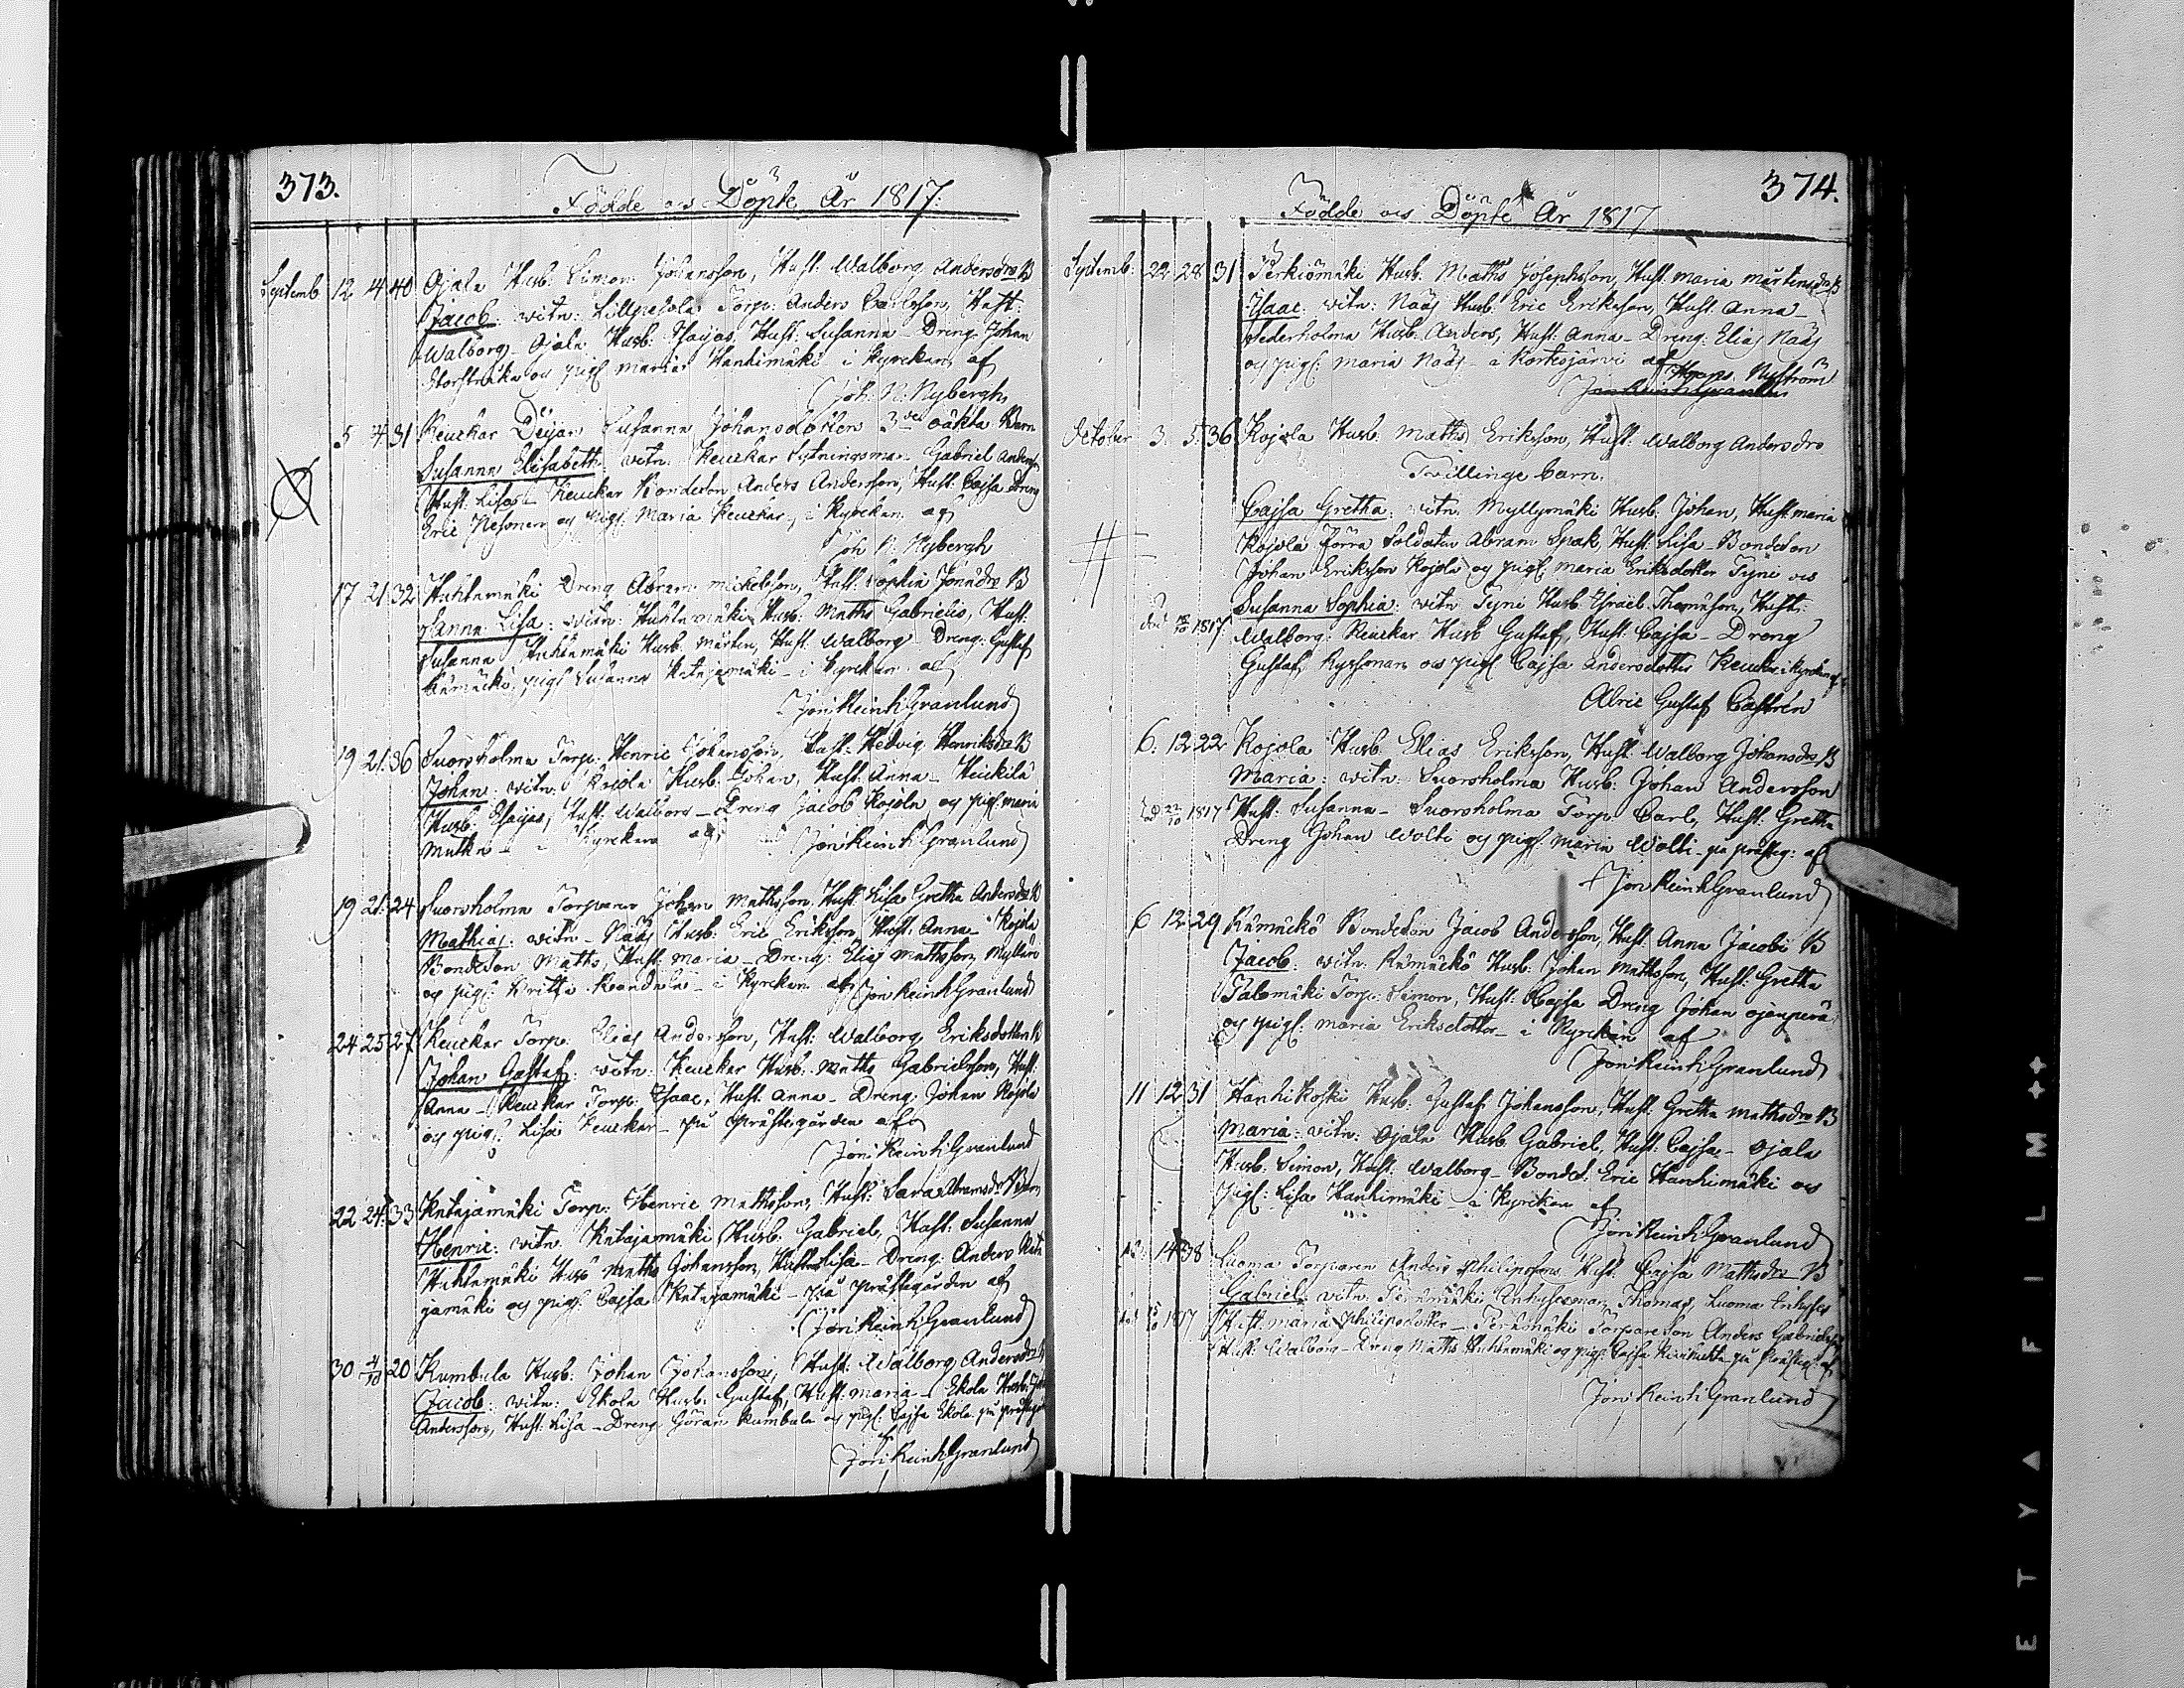 373.
Födde och Döpte År 1817:
Septemb 12 14 40 Ojala Husb: Simon Johansson, Hust: Walborg Andersdr B
Jacob: vitn: Lillpesola Torp: Anders Carlsson, Hust:
Walborg - Ojala Husb: Esaijas, Hust: Susanna - Dreng: Johan
Storstråka och pig: Maria Hanhimäki i kyrckan af
Joh: N: Nybergh
5 7 31 Keuckar Däijan Susanna Johansdotters 3dje oäkta Barn
Susanna Elisabeth: vitn: Keuckar Sytningsman Gabriel Anderss:
Hust: Lisa - Keuckar Bondeson Anders Andersson, Hust: Cajsa Dreng
Eric Nesonen og pig: Maria Keuckar, i Kyrckan af
Joh N: Nybergh
17 21 32 Huhtamäki Dreng Abram Mickelsson, Hust: Sophia Jonædr B
Sanna Lisa: vitn: Huhtamäki Husb: Matts Gabrielss, Hust:
Susanna Huhtamäki Husb: Mårten, Hust: Walborg Dreng: Gustaf
Rämäckö, pig: Susanna Katajamäki - i Kyrckan af
Jon: Reinh: Granlund
19 21 36 Suorsholma Torp: Henric Johansson, Hust: Hedvig Henriksdr B
Johan: vitn: Kojola Husb: Johan, Hust: Anna - Heickilä
Husb: Esaijas, Hust: Walborg - Dreng Jacob Kojola og pig: Maria
Mutka - i Kyrckan af Jon: Reinh: Granlund
19 21 24 Suorsholma Torparen Johan Mathsson, Hust: Lisa Gretha Andersdr B
Mathias: vitn - Nääs Husb: Eric Eriksson, Hust: Anna - Kojola
Bondeson Maths, Hust: Maria - Dreng: Elias Mathsson Myllari
og pig: Britta - i Kyrckan af Jon Reinh Granlund
24 25 27 Keuckar Torp: Elias Andersson, Hust: Walborg Eriksdotter B
Johan Gustaf: vitn: Keuckar Husb: Matts Gabrielsson, Hust:
Anna - Keuckar Torp: Isaac, Hust: Anna - Dreng: Johan Kojola
og pig: Lisa Keuckar - på prästegården af
Jon: Reinh: Granlund
22 24 33 Katajamäki Torp: Henric Mathsson, Hust: Sara Abramsdr Barn
Henric: vitn: Katajamäki Husb: Gabriel, Hust: Susanna
Huhtamäki Husb Maths Johansson, Hustru Lisa - Dreng: Anders Kata
jamäki og pig: Cajsa Katajamäki - på prästegården af
Jon: Reinh: Granlund
30 4/10 20 Kumbula Husb: Johan Johansson, Hust: Walborg Andersdr B
Jacob: vitn: Ekola Husb: Gustaf, Hust: Maria - Ekola Husb: Joh
Andersson, Hust: Lisa - Dreng Göran Kumbula og pig: Cajsa Ekola på prästegår
af
Jon: Reinh: Granlund
374.
Födde och Döpte År 1817
Septemb: 22 28 31 Perkiömäki Husb: Maths Josephsson, Hust: Maria Mårtensdr B
Isaac: vitn: Nääs Husb: Eric Eriksson, Hust: Anna -
Sederholma Husb: Anders, Hust: Anna - Dreng: Elias Nääs
og pig: Maria Nääs - i Kortesjärvi af Nyström
Jon Reinh Granlund
October 3. 5. 36 Kojola Husb: Maths Eriksson, Hust: Walborg Andersdr
Tvillinge barn.
Cajsa Gretha: vitn: Myllymäki Husb: Johan, Hust: Maria
Kojola förra Soldaten Abram Spak, Hust: Lisa - Bondeson
Johan Eriksson Kojola og pig: Maria Eriksdotter Tyni och
Susanna Sophia: vitn Tyni Husb: Israel Thomasson, Hust:
död 1817 Walborg: Keuckar Husb Gustaf, Hust: Cajsa - Dreng
Gustaf Ryssonan och pig: Cajsa Andersdotter Keuckar i kyrckan af
Alric Gustaf Castrén
6: 12 22 Kojola Husb: Elias Eriksson, Hust: Walborg Johansdr B
Maria: vitn: Suorsholma Husb: Johan Andersson
död 22/10 1817 Hust: Susanna - Suorsholma Torp: Carl, Hust: Gretha
Dreng Johan Wolti og pig: Maria Wolti - på prästeg: af
Jon Reinh Granlund
6 12 29 Rämäckö Bondeson Jacob Andersson, Hust: Anna Jacobi B
Jacob: vitn: Rämäckö Husb: Johan Mathsson, Hust: Gretha
Talomäki Torp: Simon, Hust: Cajsa Dreng Johan Ojenperä
og pig: Maria Eriksdotter - i Kyrckan af
Jon Reinh Granlund
11 12 31 Hanhikoski Husb: Gustaf Johansson, Hust: Gretha Mathsdr B
Maria: vitn: Ojala Husb: Gabriel, Hust: Cajsa - Ojala
Husb: Simon, Hust: Walborg - Bondes: Eric Hanhimäki och
Pig: Lisa Hanhimäki - i Kyrckan af
Jon Reinh Granlund
12 14 38 Luoma Torparen Anders Philipsson, Hust: Cajsa Mathsdr B
Gabriel: vitn: Inhysesman Thomas, Luoma Inhyses
död 1817 Hust: Maria Philipsdotter - Torpareson Anders Gabrielss:
Hust: Walborg - Dreng Matts Huhtamäki og pig: Cajsa - på Prästeg: af
Jon Reinh Granlund
SAFETY FILM